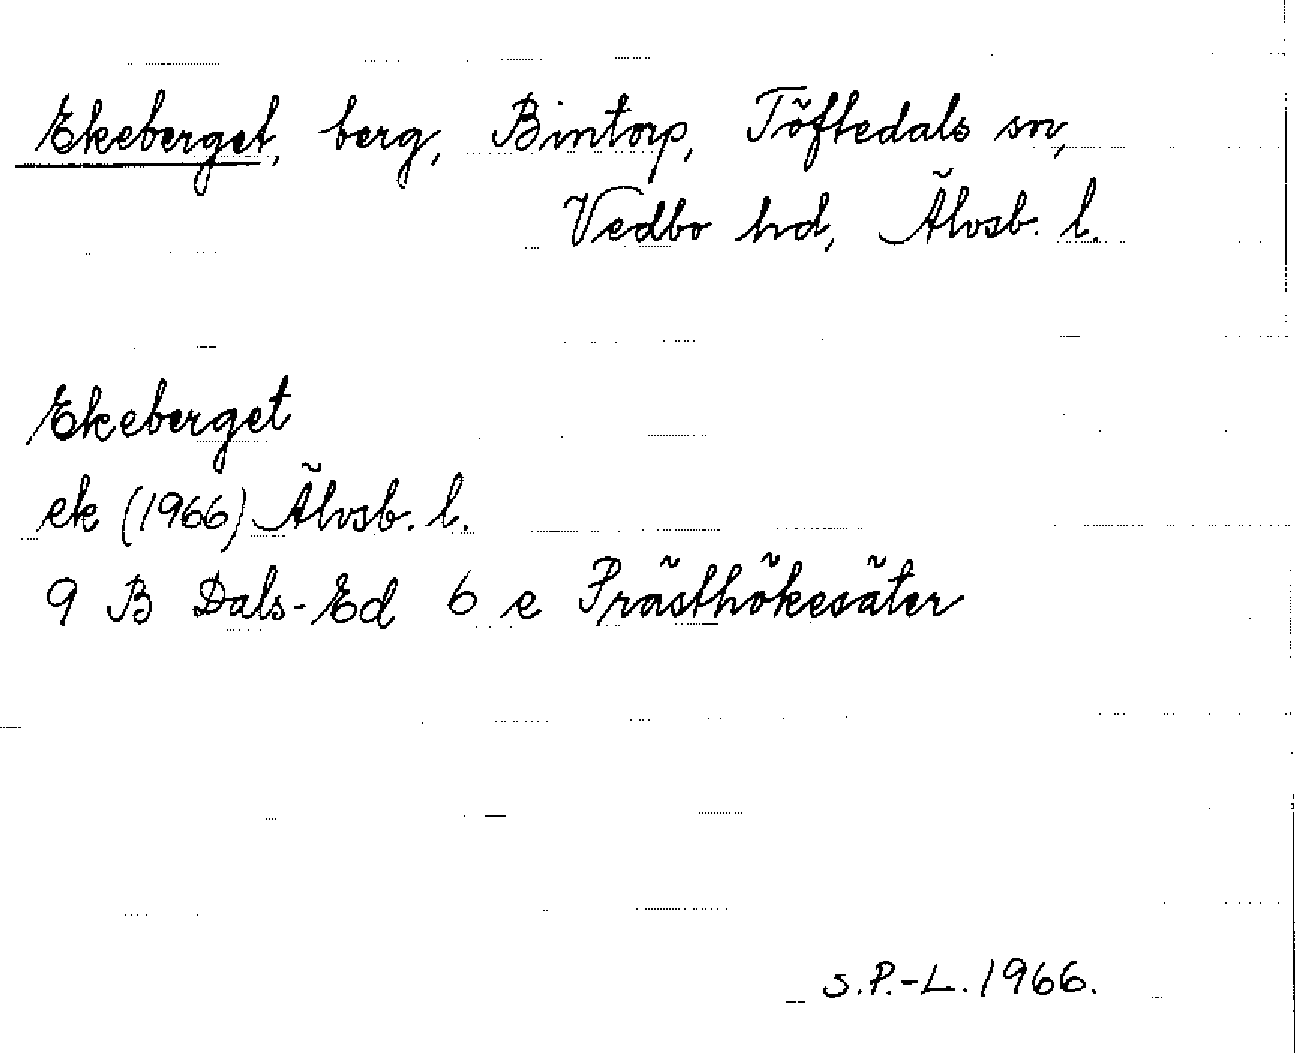 Ekeberget, berg, Bintorp, Töftedals sn,
Vedbo hd, Älvsb. l.
Ekeberget
ek (1966) Älvsb. l.
9 B Dals-Ed 6 e Prästhökesäter
S.P.-L. 1966.